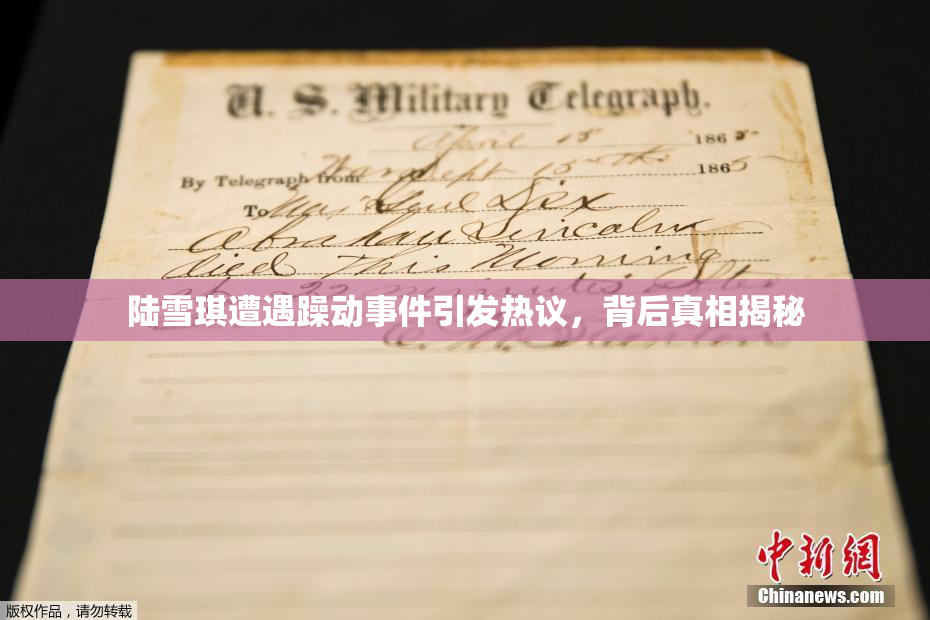 U. S. Military Telegraph.
April 15 1865.
By Telegraph from War Dept 15th 1865
To Maj Genl Dix
Abraham Lincoln
died This Morning
22 minutes after
陆雪琪遭遇躁动事件引发热议，背后真相揭秘
E. M. Stanton
中新网
Chinanews.com
版权作品，请勿转载